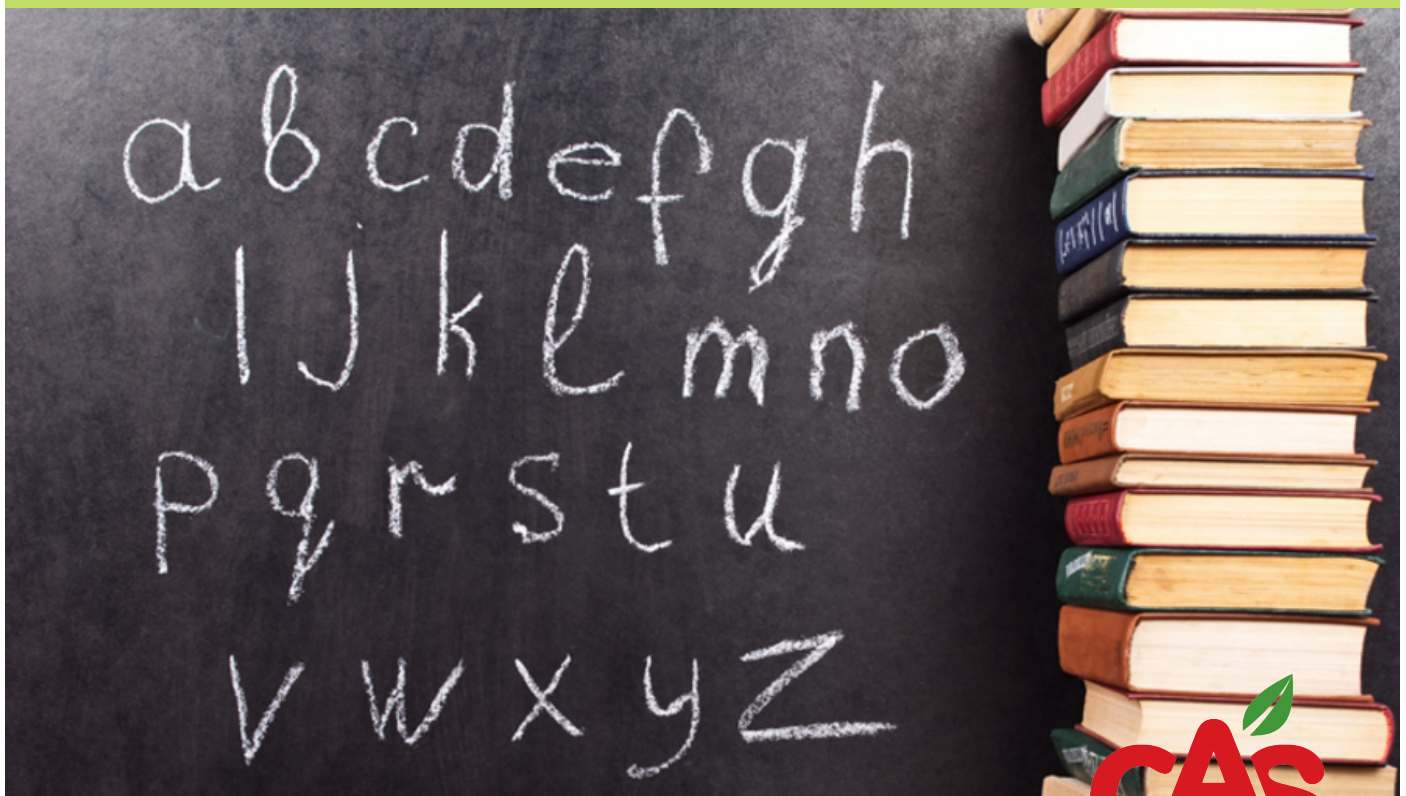 a b c d e f g h
l j k l m n o
p q r s t u
v w x y z
CAS